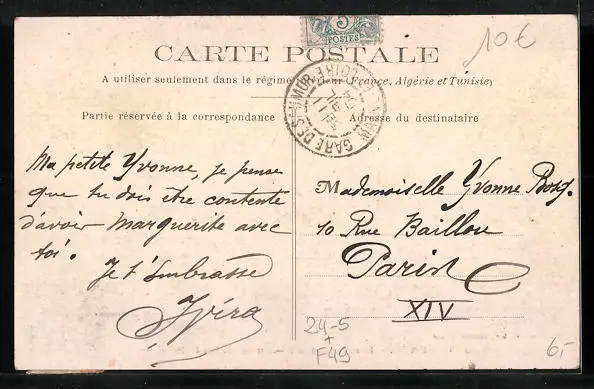 5
POSTES
10€
CARTE POSTALE
A utiliser seulement dans le régime intérieur (France, Algérie et Tunisie)
Partie réservée à la correspondance
Adresse du destinataire
GARE DE SAUMUR
LOIRE
Ma petite Yvonne, je pense
que tu dois être contente
d'avoir Marguerite avec
toi.
Je t'embrasse
Mademoiselle Yvonne
10 Rue Baillou
Paris
XIV
24-5
+
F49
6,-